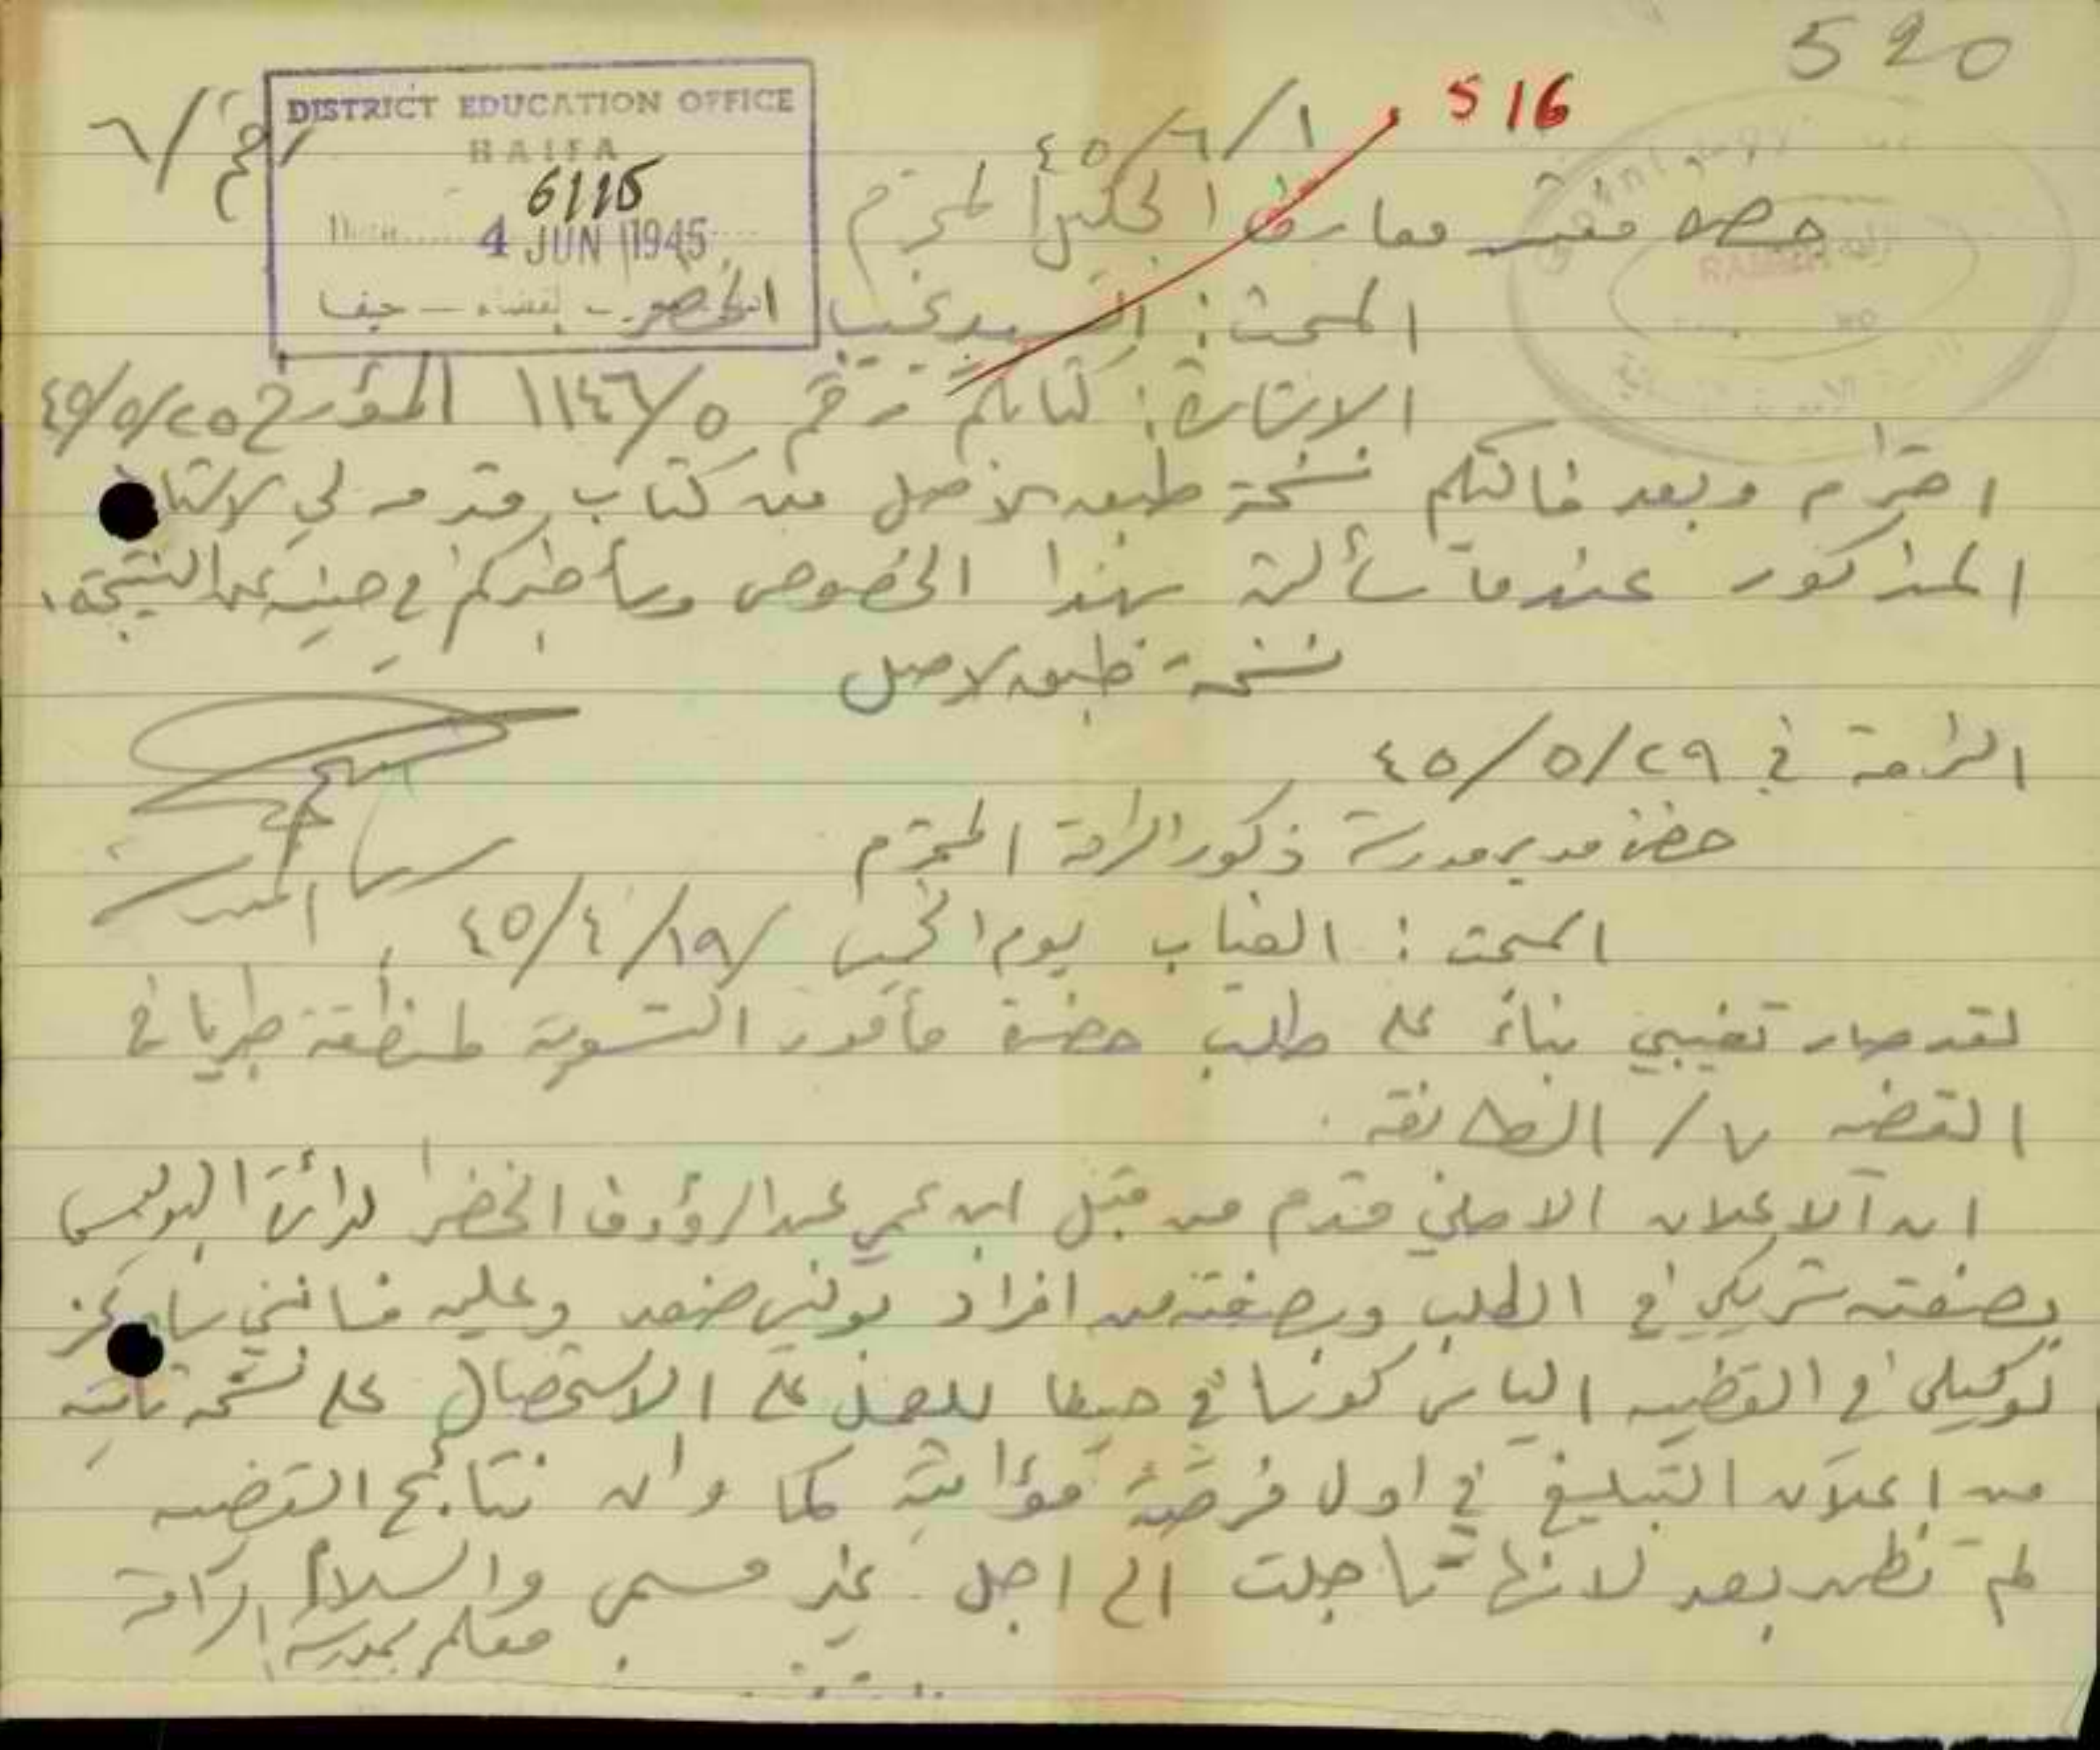 520
516
DISTRICT EDUCATION OFFICE
HAIFA
6115
4 JUN 1945
٤٥/٦/١
حضرة مفتش معارف الجليل المحترم
المبحث: السيد نجيب الخضرا
الاشارة: كتابكم رقم ١١٤٦/٥ المؤرخ ٤٥/٥/٢٥
احترام وبعد فاليكم نسخة طبق الاصل من كتاب قدمه لي الاستاذ
المذكور عندما سألته بهذا الخصوص وسأخبركم في حينه عن النتيجة.
نسخة طبق الاصل
الرامة في ٤٥/٥/٢٩
حضرة مدير مدرسة ذكور الرامة المحترم
المبحث: الغياب يوم الخميس ٤٥/٤/١٩
لقد صار تغيبي بناءً على طلب حضرة مأمور التسوية لمنطقة طبريا في
القضية ٧ / الطابغة.
ان الاعلان الاصلي قدم من قبل ابن عمي عبد الرؤوف الخضرا لدائرة البوليس
بصفته شريكي في الطلب وبصفته من افراد بوليس صفد وعليه فانني
توكيلي في القضية الياس كوسا في حيفا للعمل على الاستحصال على نسخة ثانية
من اعلان التبليغ في اول فرصة مؤاتية كما وان نتائج القضية
لم تظهر بعد لانها تاجلت الى اجل غير مسمى والسلام
معلم بمدرسة الرامة